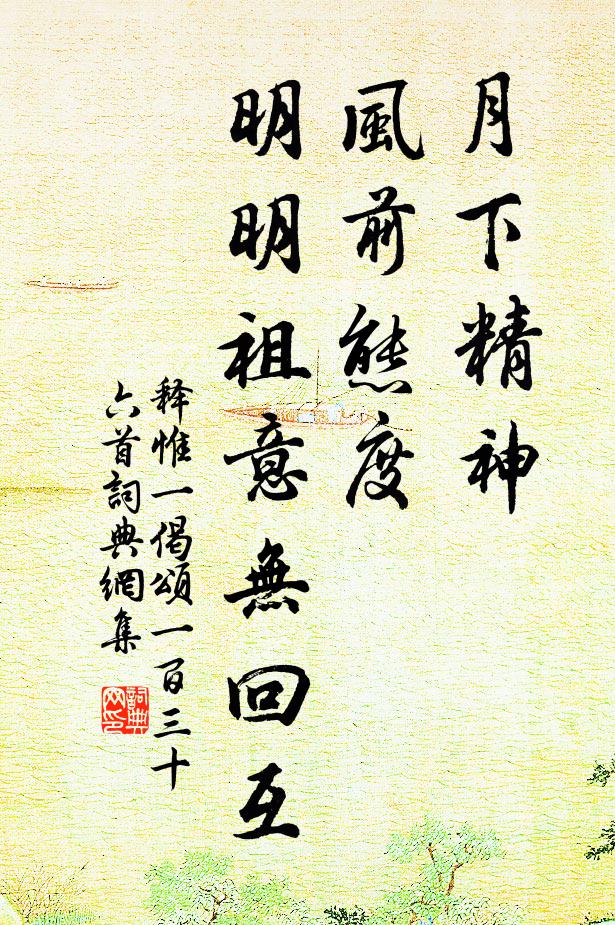 月下精神
風前態度
明明祖意無回互
释惟一偈頌一百三十
六首詞典網集
詞典
网印